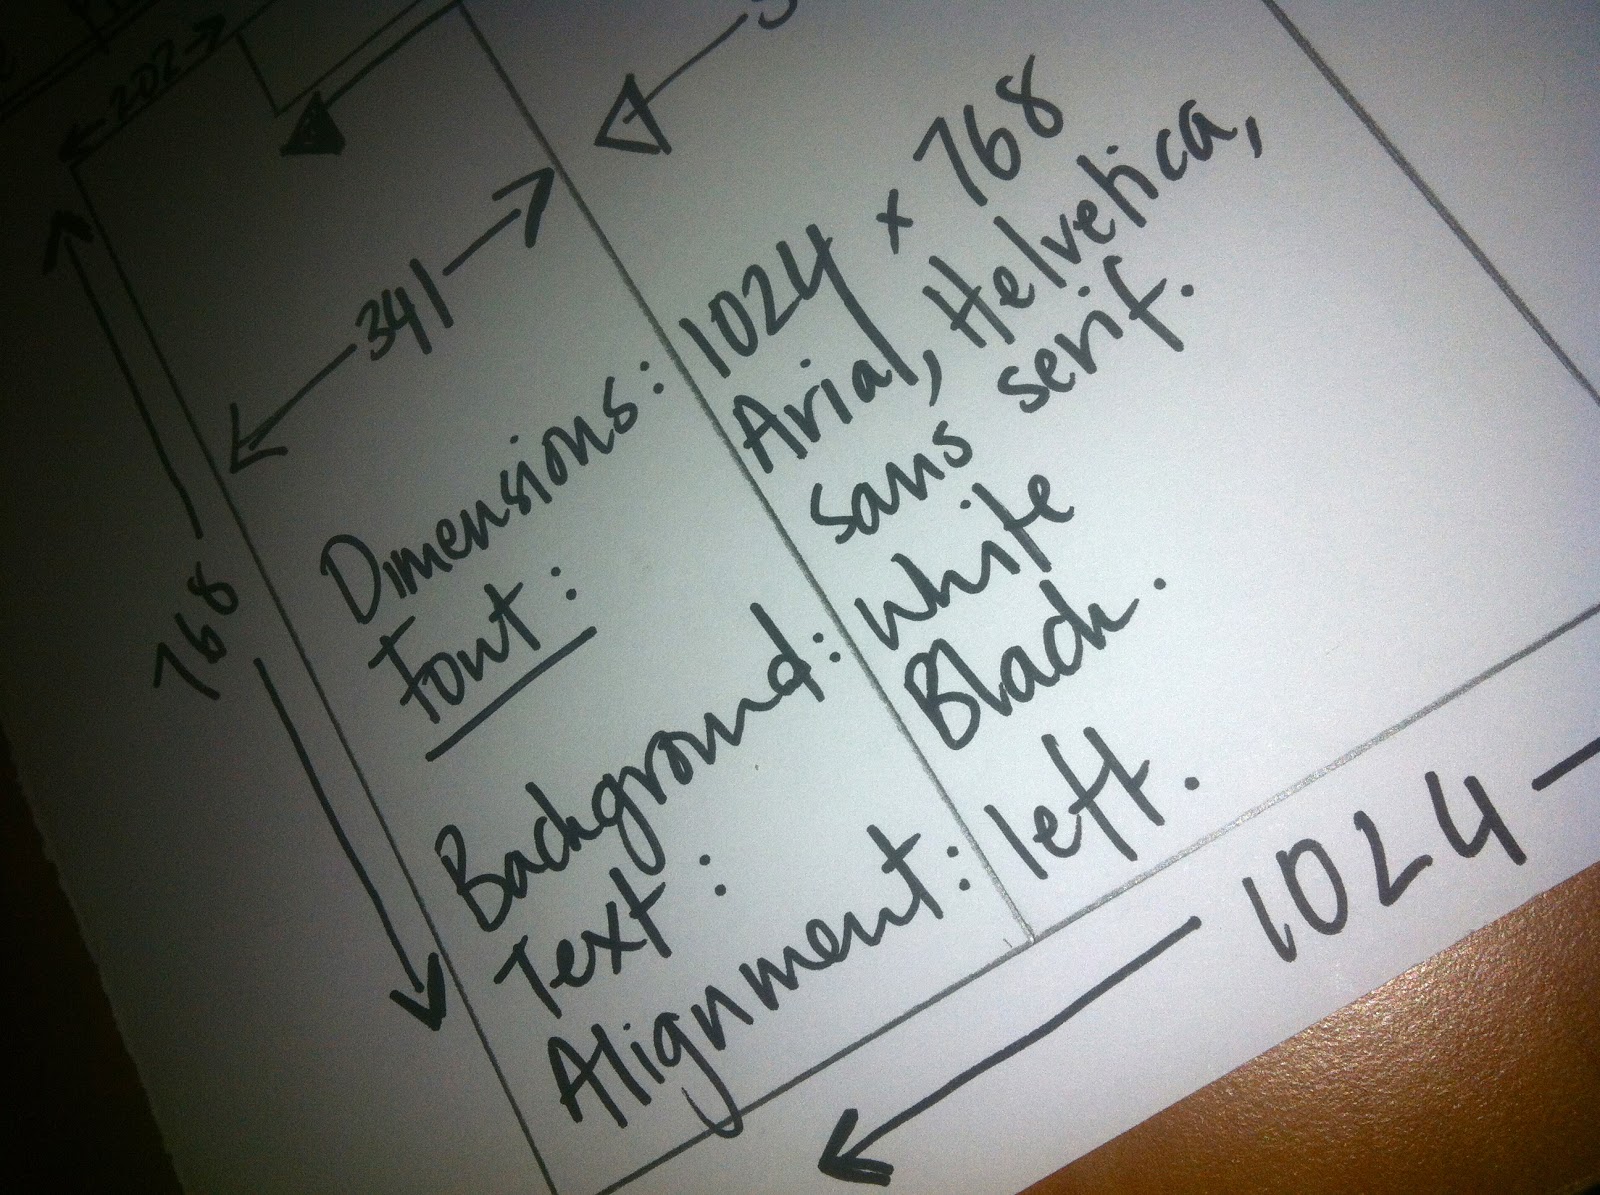 202
341
768
Dimensions: 1024 x 768
Font: Arial, Helvetica,
sans serif.
Background: White
Text: Black.
Alignment: left.
1024